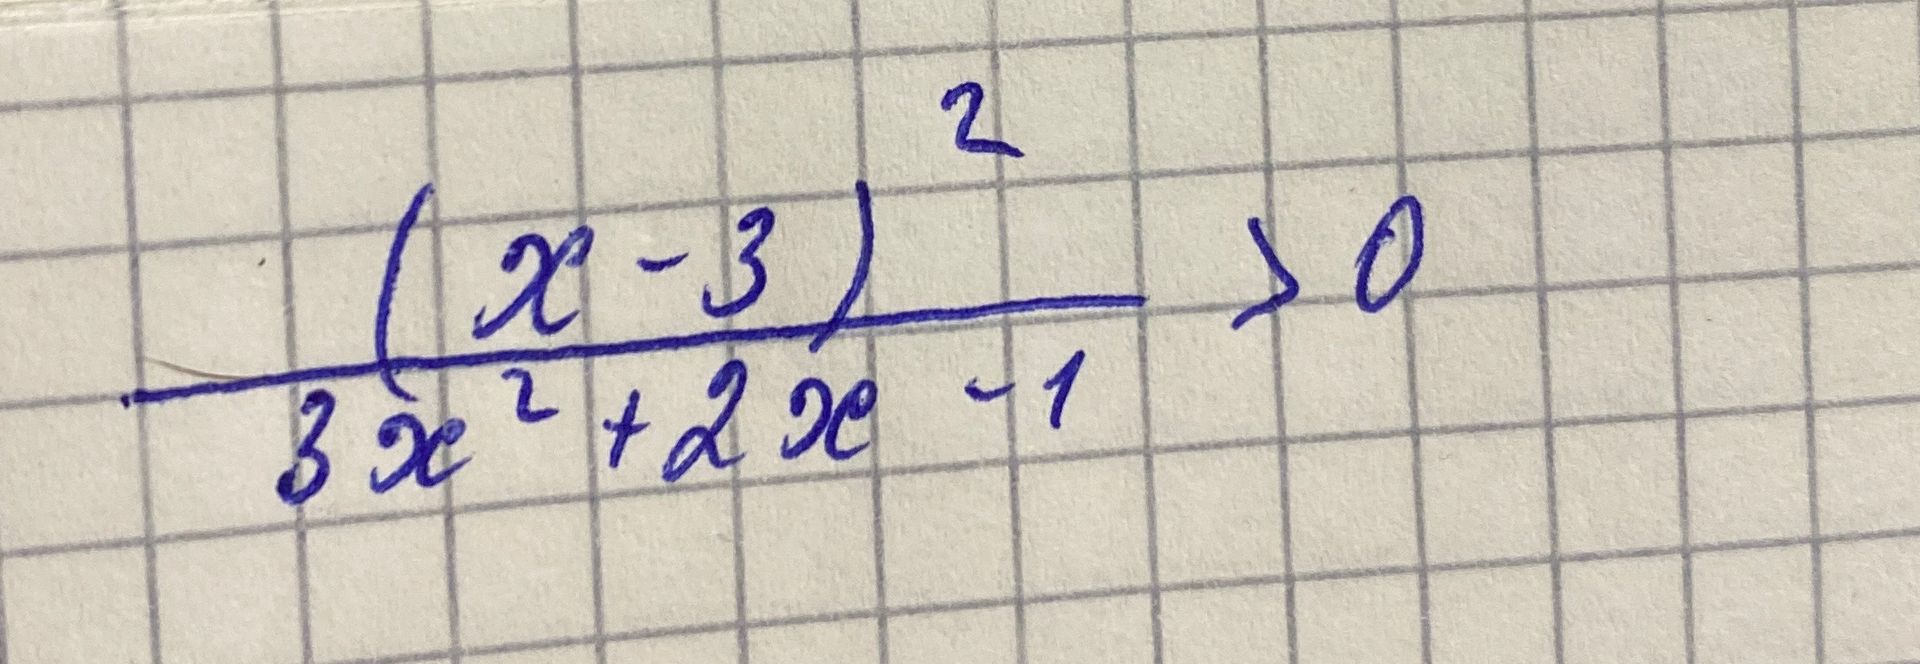 (x-3)²
3x²+2x-1 >0